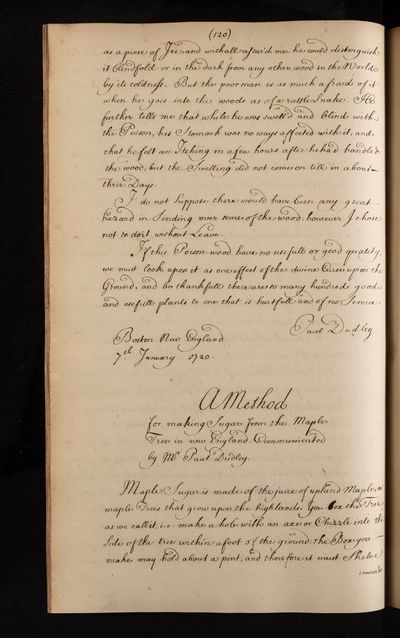 (120)
as a piece of Ice, and withall assur'd me he could distinguish
it blindfold or in the dark from any other wood in the World
by its coldness. But the poor man is as much afraid of it
when he goes into the woods as of a rattle snake. He
further tells me that while he was swell'd and blind with
the Poison, his Stomach was no ways affected with it, and
that he felt an Itching in a few hours after he had handled
the wood, but the Swelling did not come on till in about
three Days.
I do not suppose there would have been any great
hazard in Sending over some of the wood: however I chose
not to do it without Leave.
If this Poison-wood have no usefull or good quality,
we must look upon it as one effect of the divine Curse upon the
Ground, and be thankfull there are so many hundred good
and usefull plants to one that is hurtfull and of no Service.
Paul Dudley
Boston New England
7th January 1720.
A Method
for making Sugar from the Maple
Tree in new England. Communicated
by Mr Paul Dudley.
Maple Sugar is made of the juice of upland Maple, or
maple Trees that grow upon the Highlands. You box the Tree
as we call it, i.e. make a hole with an axe or Chizzle into the
Side of the tree within a foot of the ground; the Box you
make may hold about a pint, and therefore it must Shelve
inwards